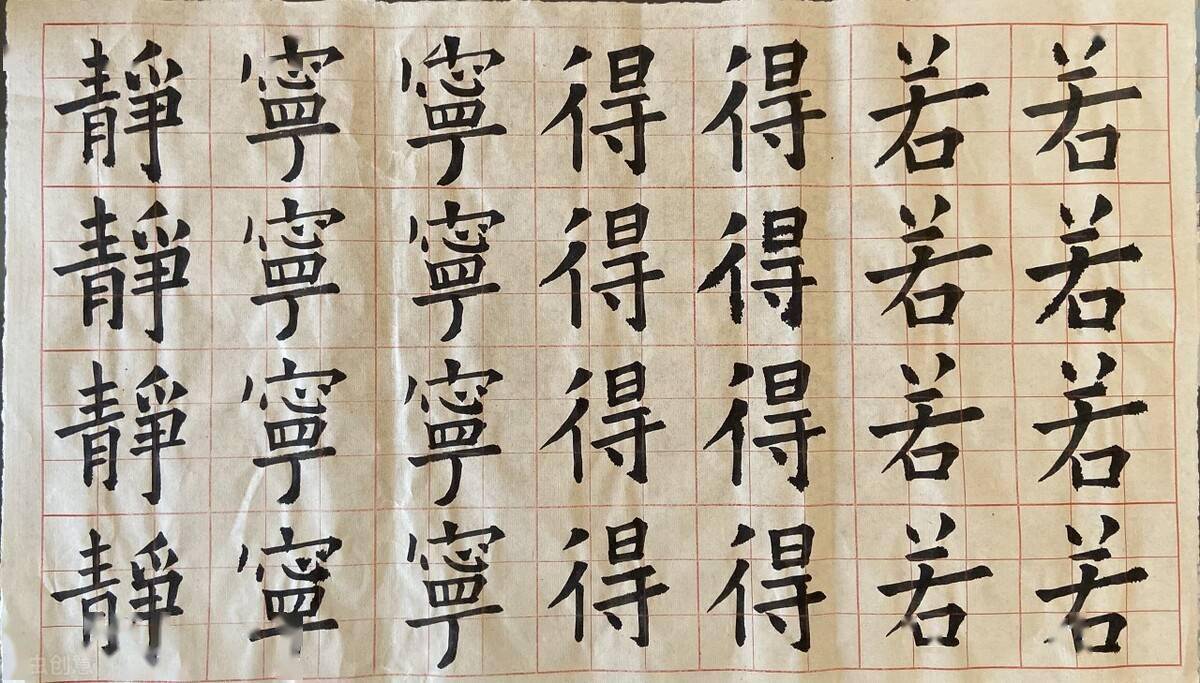 若若若若
若若若若
得得得得
得得得得
寧寧寧寧
寧寧寧寧
靜靜靜靜
虫创意